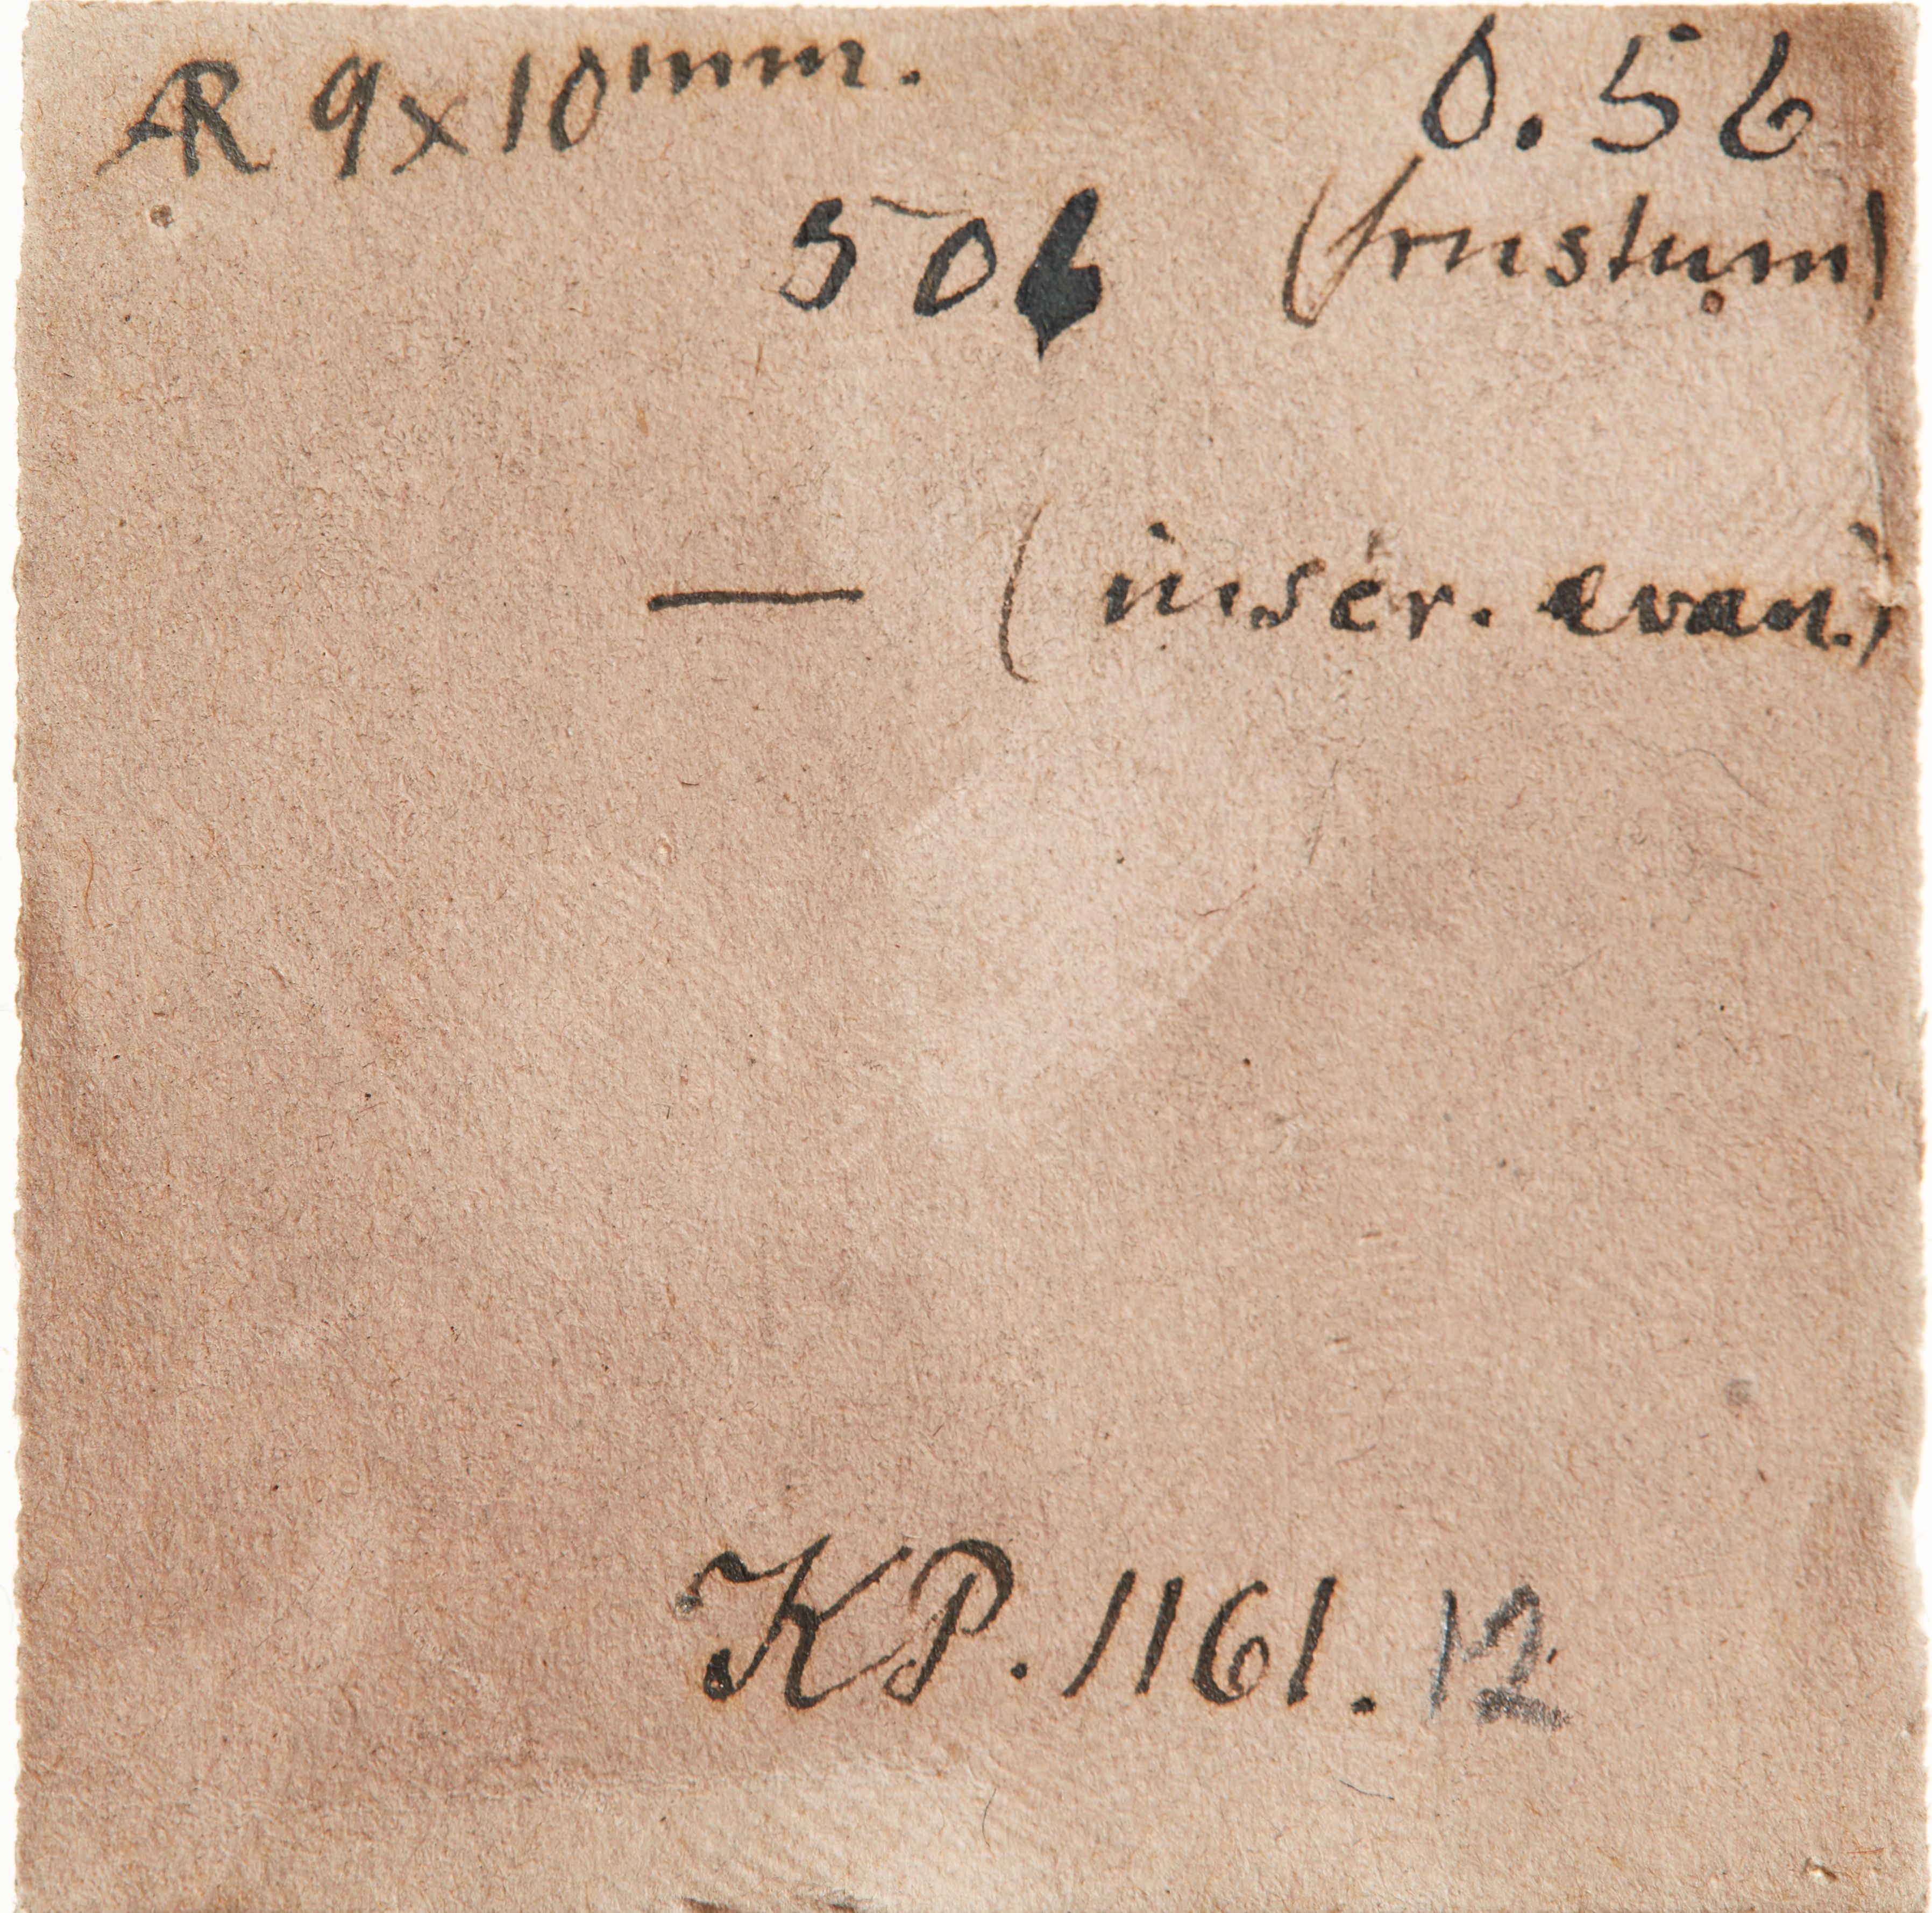 AR 9x10mm. 0.56
506 (frustum)
— (inscr. evan.)
KP. 1161.12